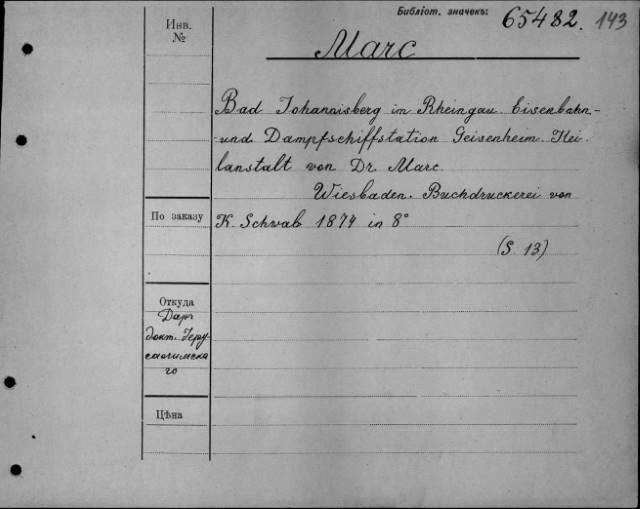 Библіот. значекъ: 65482. 143
Инв.
№
Marc
Bad Johannisberg im Rheingau. Eisenbahn-
-und Dampfschiffstation Geisenheim. Hei-
lanstalt von Dr. Marc.
Wiesbaden. Buchdruckerei von
K. Schwab 1874 in 8°
(S. 13)
По заказу
Откуда
Даръ
докт. Іеру-
салимска
го
Цѣна